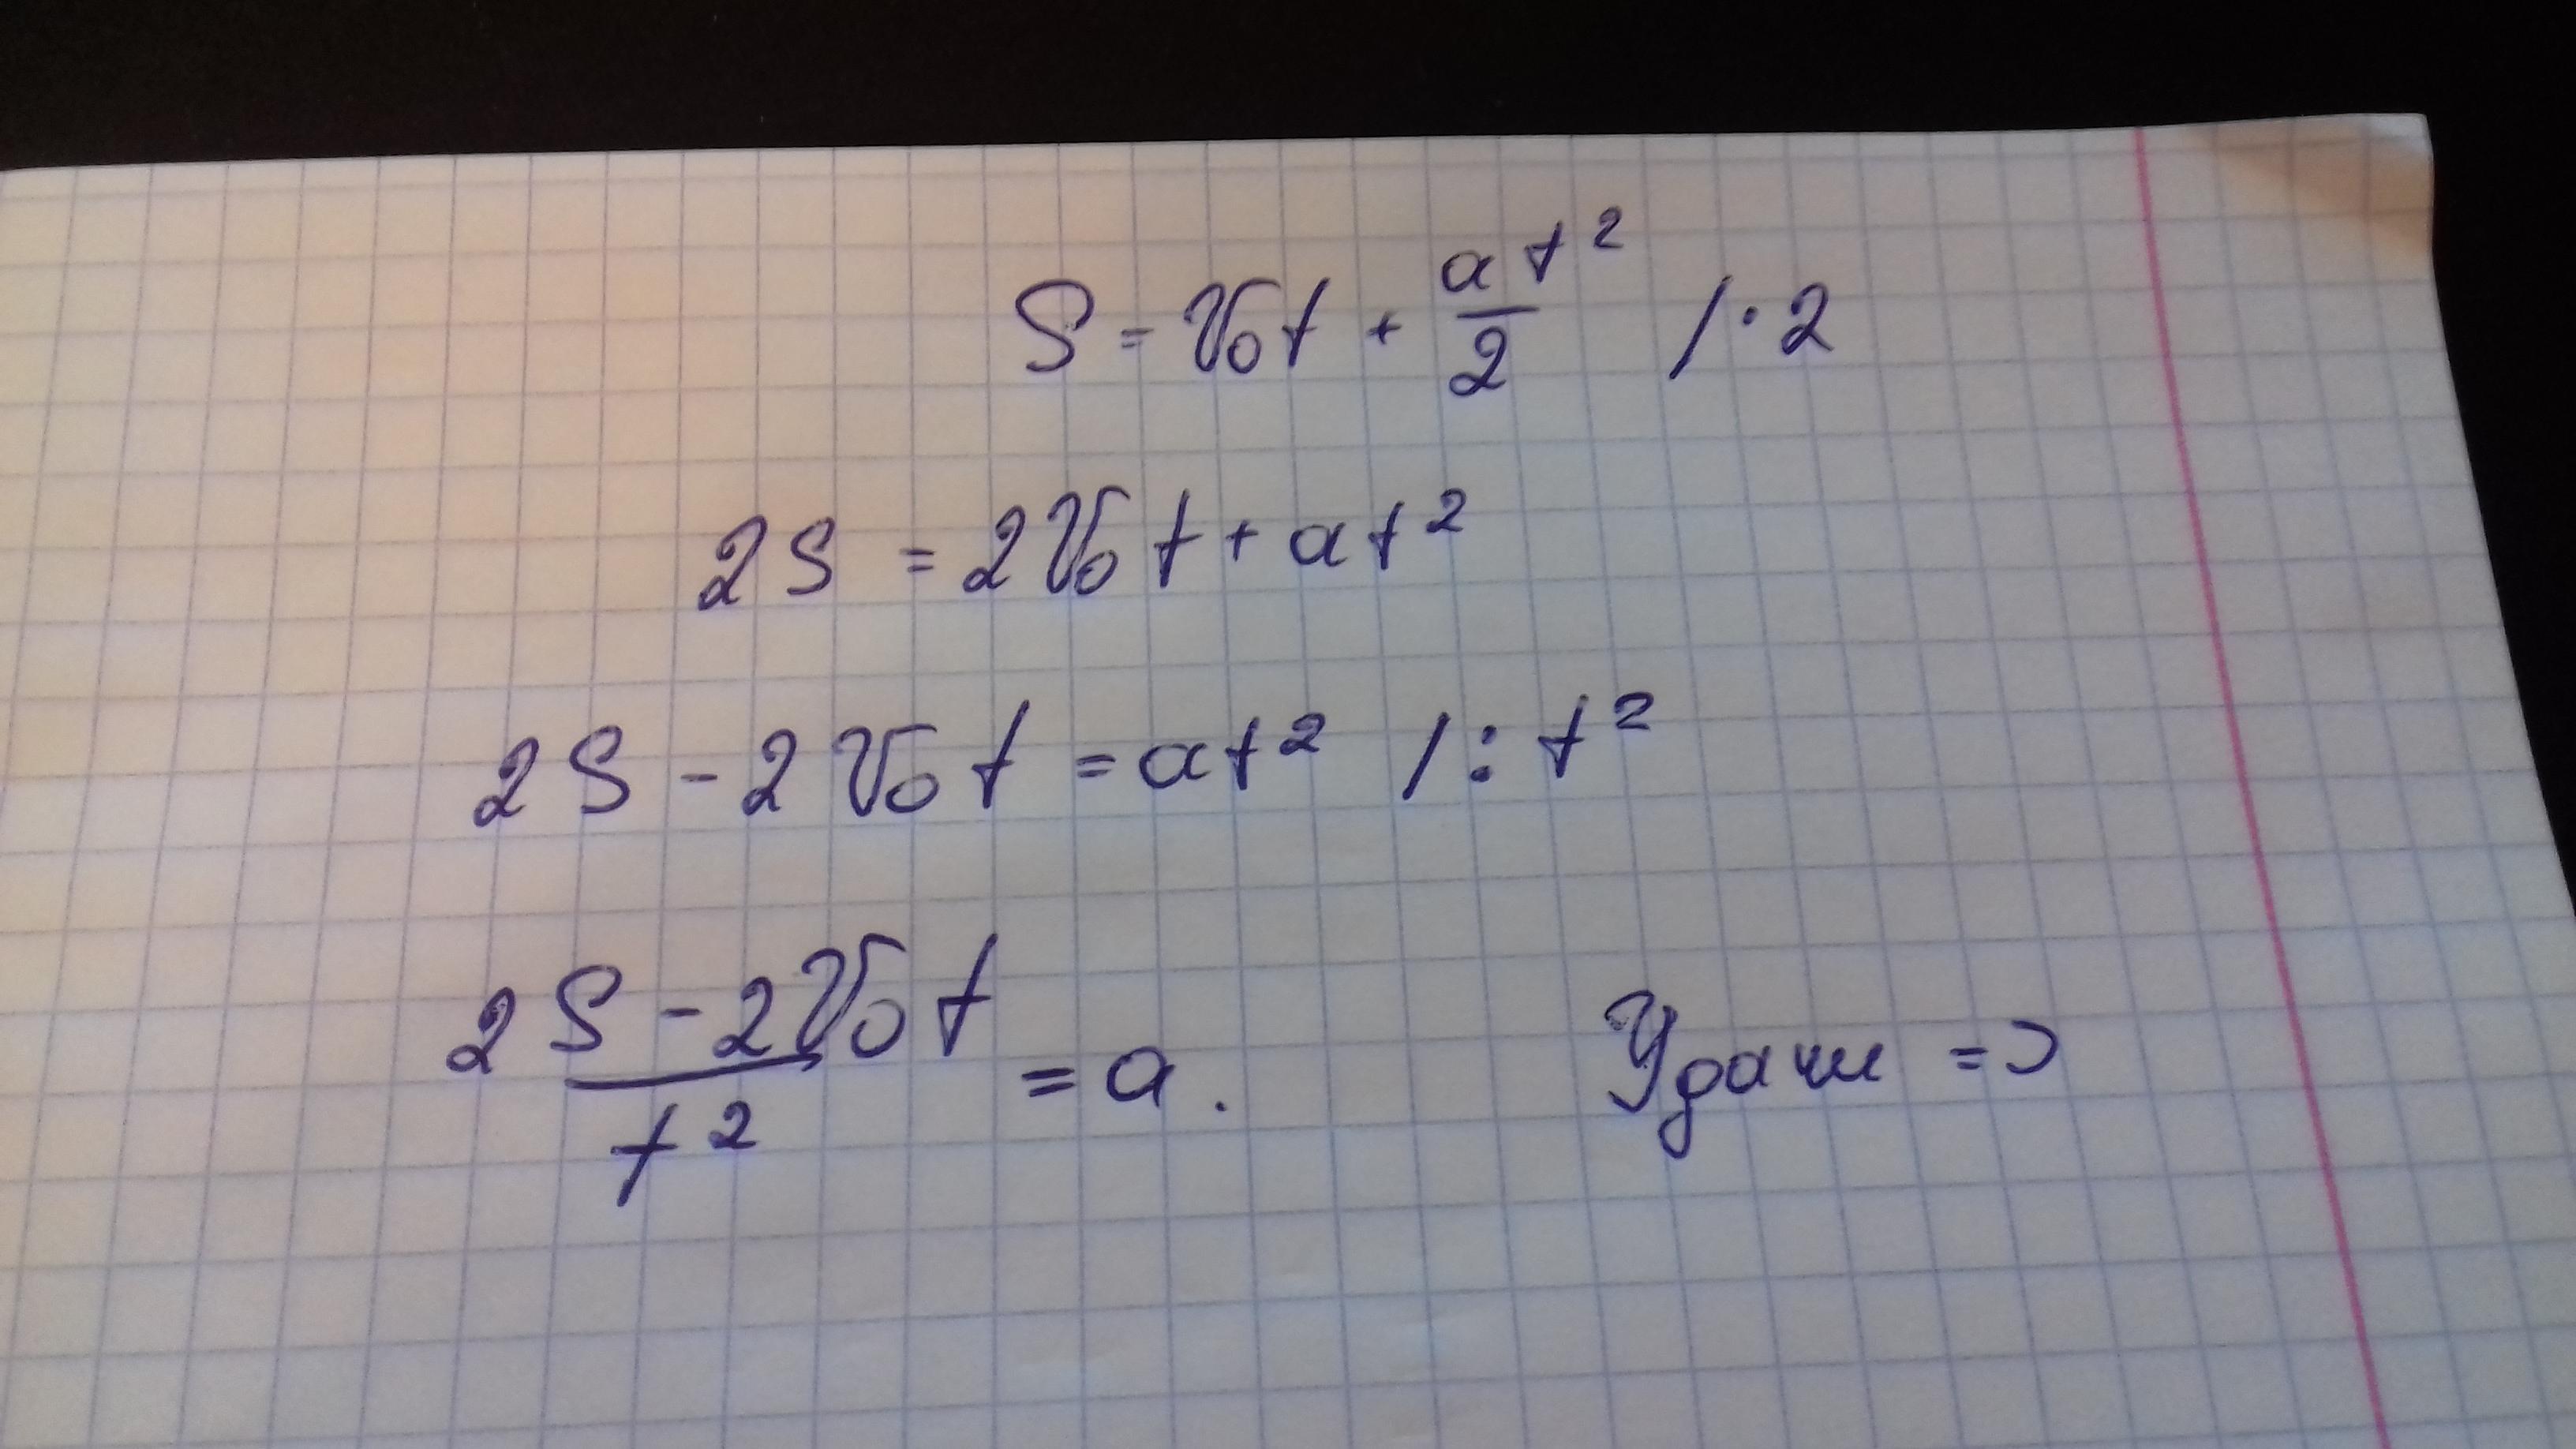 S = V₀t + at²/2 /·2
2S = 2V₀t + at²
2S - 2V₀t = at² /:t²
(2S - 2V₀t)/t² = a.
Удачи =)